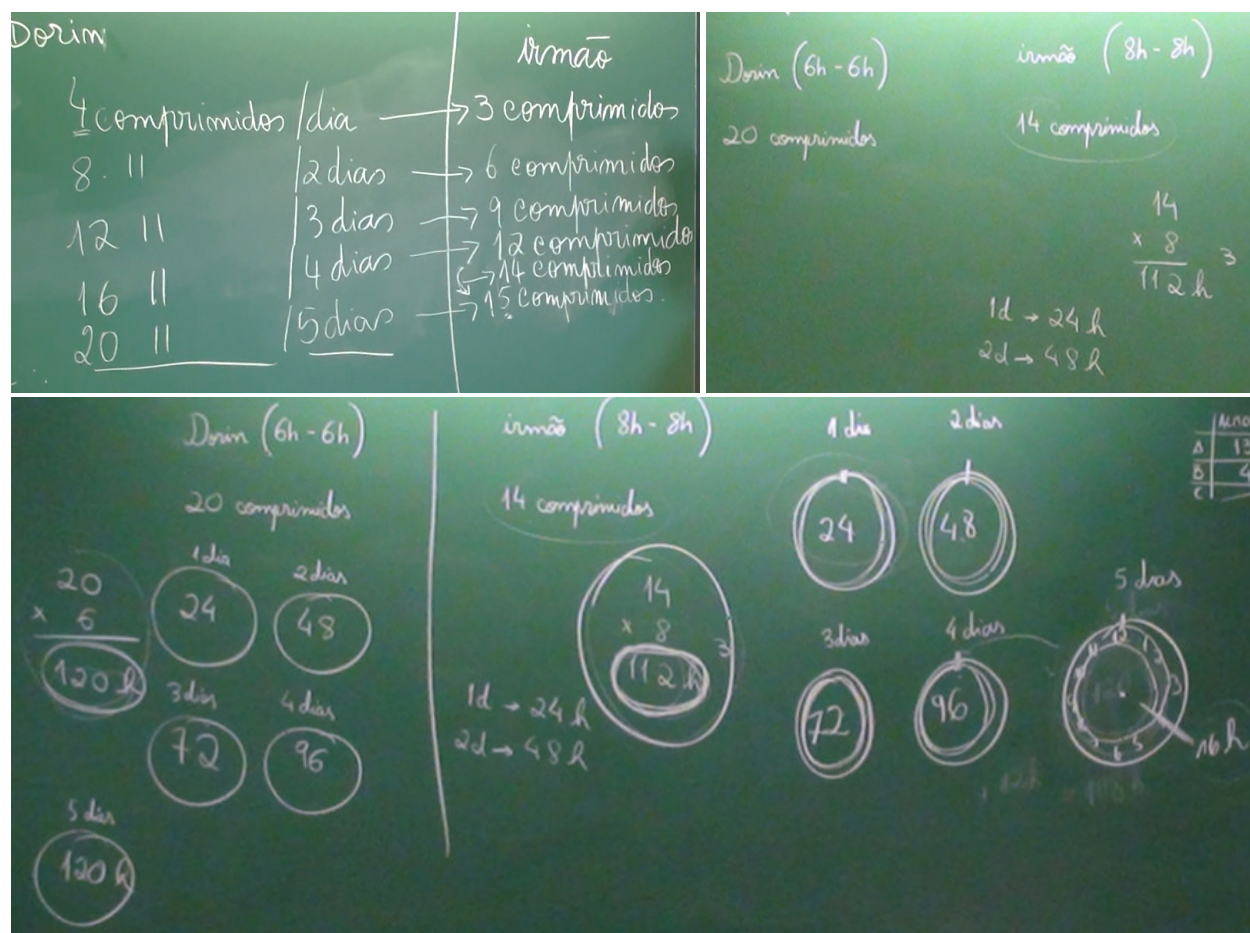 Dorin
irmão
4 comprimidos / dia → 3 comprimidos
8 " / 2 dias → 6 comprimidos
12 " / 3 dias → 9 comprimidos
16 " / 4 dias → 12 comprimidos
→ 14 comprimidos
20 " / 5 dias → 15 comprimidos.
Dorin (6h - 6h)
irmão (8h - 8h)
20 comprimidos
14 comprimidos
14
x 8 3
112 h
1d → 24 h
2d → 48 h
Dorin (6h - 6h)
20 comprimidos
20
x 6
120 h
1 dia
24
2 dias
48
3 dias
72
4 dias
96
5 dias
120 h
irmão (8h - 8h)
14 comprimidos
14
x 8 3
112 h
1d → 24 h
2d → 48 h
1 dia
24
2 dias
48
3 dias
72
4 dias
96
5 dias
16 h
A 13
B 4
C